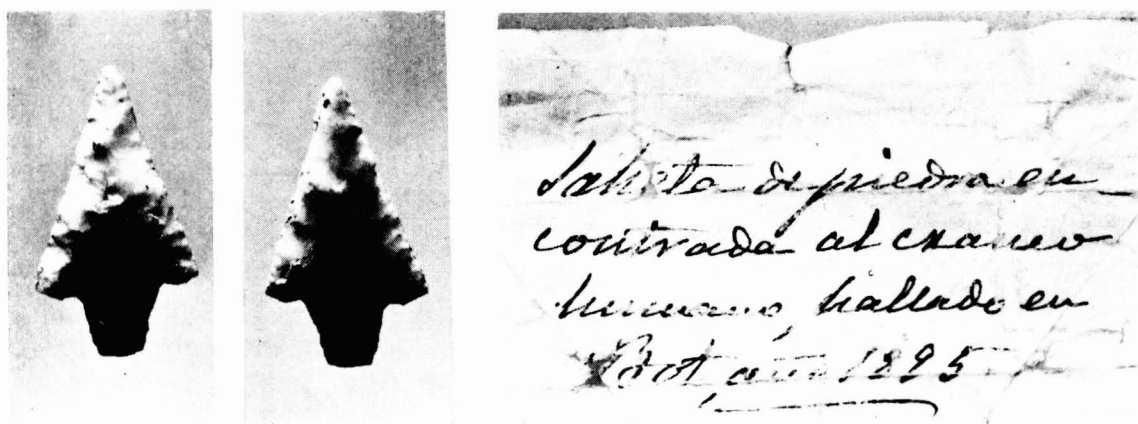 Saheta de piedra en_
contrada al craneo
humano, hallado en
Bot, año 1895